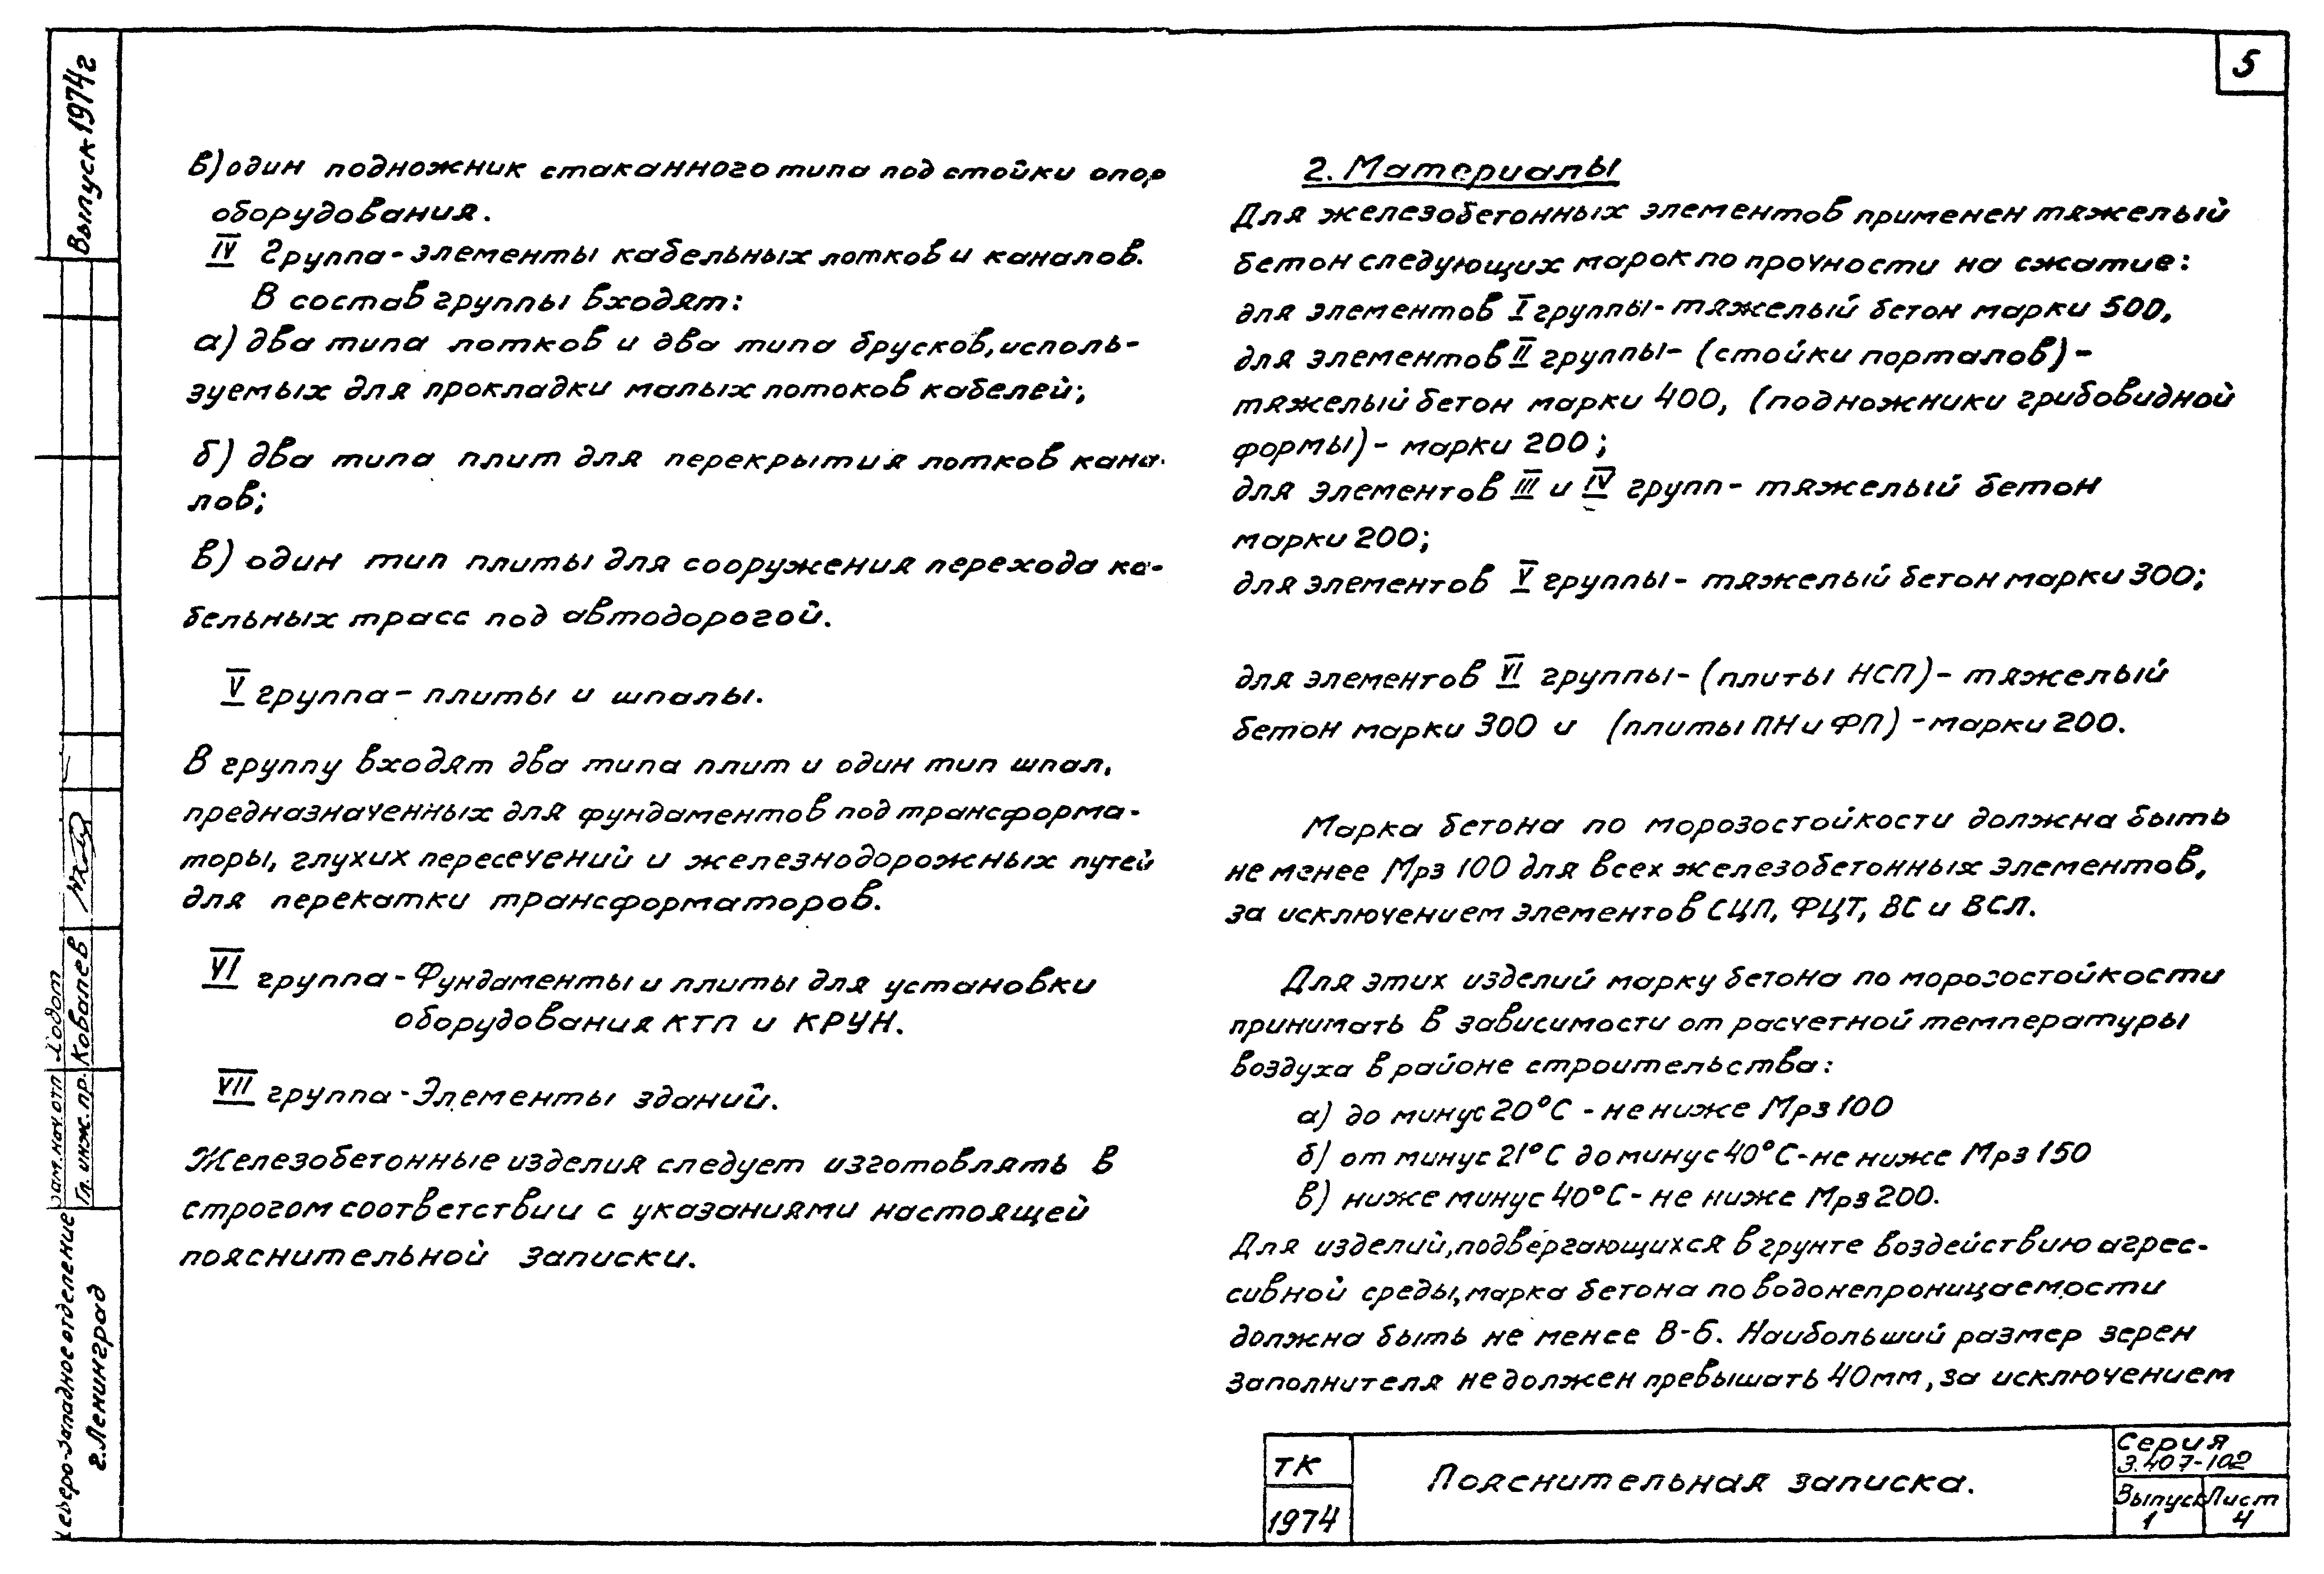 5
в) один подножник стаканного типа под стойки опор
оборудования.
IV Группа - элементы кабельных лотков и каналов.
В состав группы входят:
а) два типа лотков и два типа брусков, исполь-
зуемых для прокладки малых потоков кабелей;
б) два типа плит для перекрытия лотков кана-
лов;
в) один тип плиты для сооружения перехода ка-
бельных трасс под автодорогой.
V группа - плиты и шпалы.
В группу входят два типа плит и один тип шпал,
предназначенных для фундаментов под трансформа-
торы, глухих пересечений и железнодорожных путей
для перекатки трансформаторов.
VI группа - Фундаменты и плиты для установки
оборудования КТП и КРУН.
VII группа - Элементы зданий.
Железобетонные изделия следует изготовлять в
строгом соответствии с указаниями настоящей
пояснительной записки.
2. Материалы
Для железобетонных элементов применен тяжелый
бетон следующих марок по прочности на сжатие:
для элементов I группы - тяжелый бетон марки 500,
для элементов II группы - (стойки порталов) -
тяжелый бетон марки 400, (подножники грибовидной
формы) - марки 200;
для элементов III и IV групп - тяжелый бетон
марки 200;
для элементов V группы - тяжелый бетон марки 300;
для элементов VI группы - (плиты НСП) - тяжелый
бетон марки 300 и (плиты ПН и ФП) - марки 200.
Марка бетона по морозостойкости должна быть
не менее Мрз 100 для всех железобетонных элементов,
за исключением элементов СЦП, ФЦТ, ВС и ВСЛ.
Для этих изделий марку бетона по морозостойкости
принимать в зависимости от расчетной температуры
воздуха в районе строительства:
а) до минус 20°С - не ниже Мрз 100
б) от минус 21°С до минус 40°С - не ниже Мрз 150
в) ниже минус 40°С - не ниже Мрз 200.
Для изделий, подвергающихся в грунте воздействию агрес-
сивной среды, марка бетона по водонепроницаемости
должна быть не менее В-6. Наибольший размер зерен
заполнителя не должен превышать 40мм, за исключением
ТК
1974
Пояснительная записка.
Серия
3.407-102
Выпуск
1
Лист
4
Выпуск-1974г
Зам.нач.отп
Гл. инж. пр. Ковалев
Северо-Западное отделение
г.Ленинград